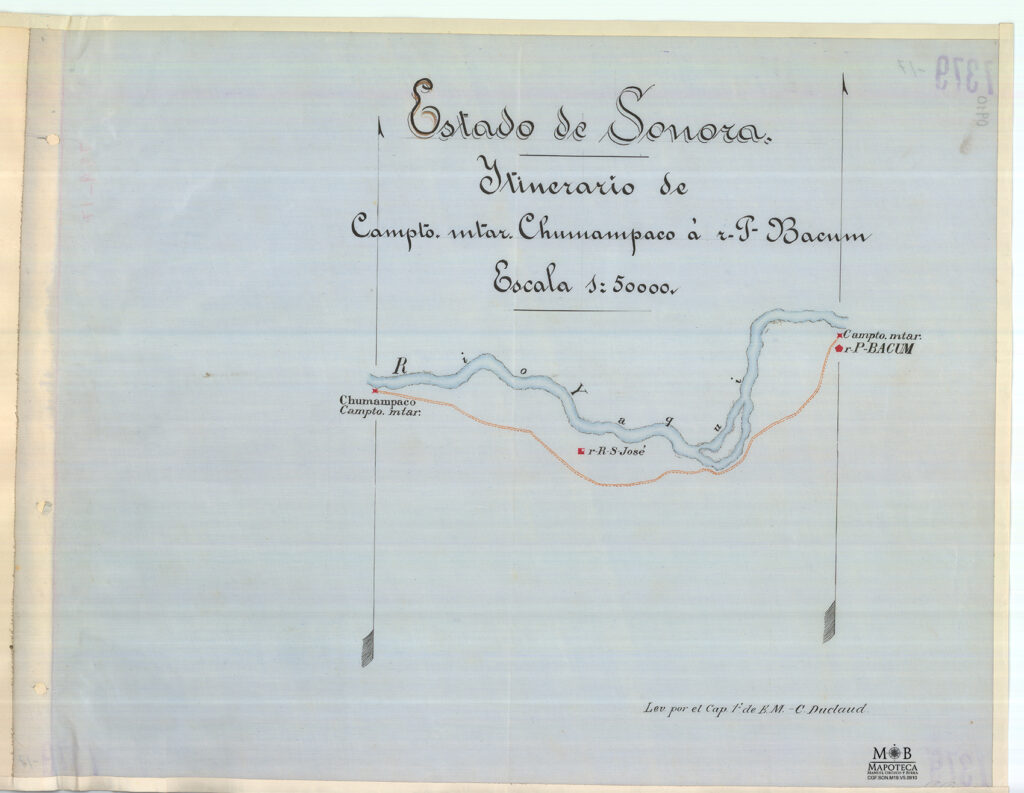 Estado de Sonora.
Itinerario de
Campto. mtar. Chumampaco á r-P- Bacum
Escala 1: 50000.
Campto. mtar.
r-P-BACUM
Rio Yaqui
Chumampaco
Campto. mtar.
r-R-S-José
Lev. por el Cap 1º de E.M.-C Duclaud.
7379
-17
M B
MAPOTECA
MANUEL OROZCO Y BERRA